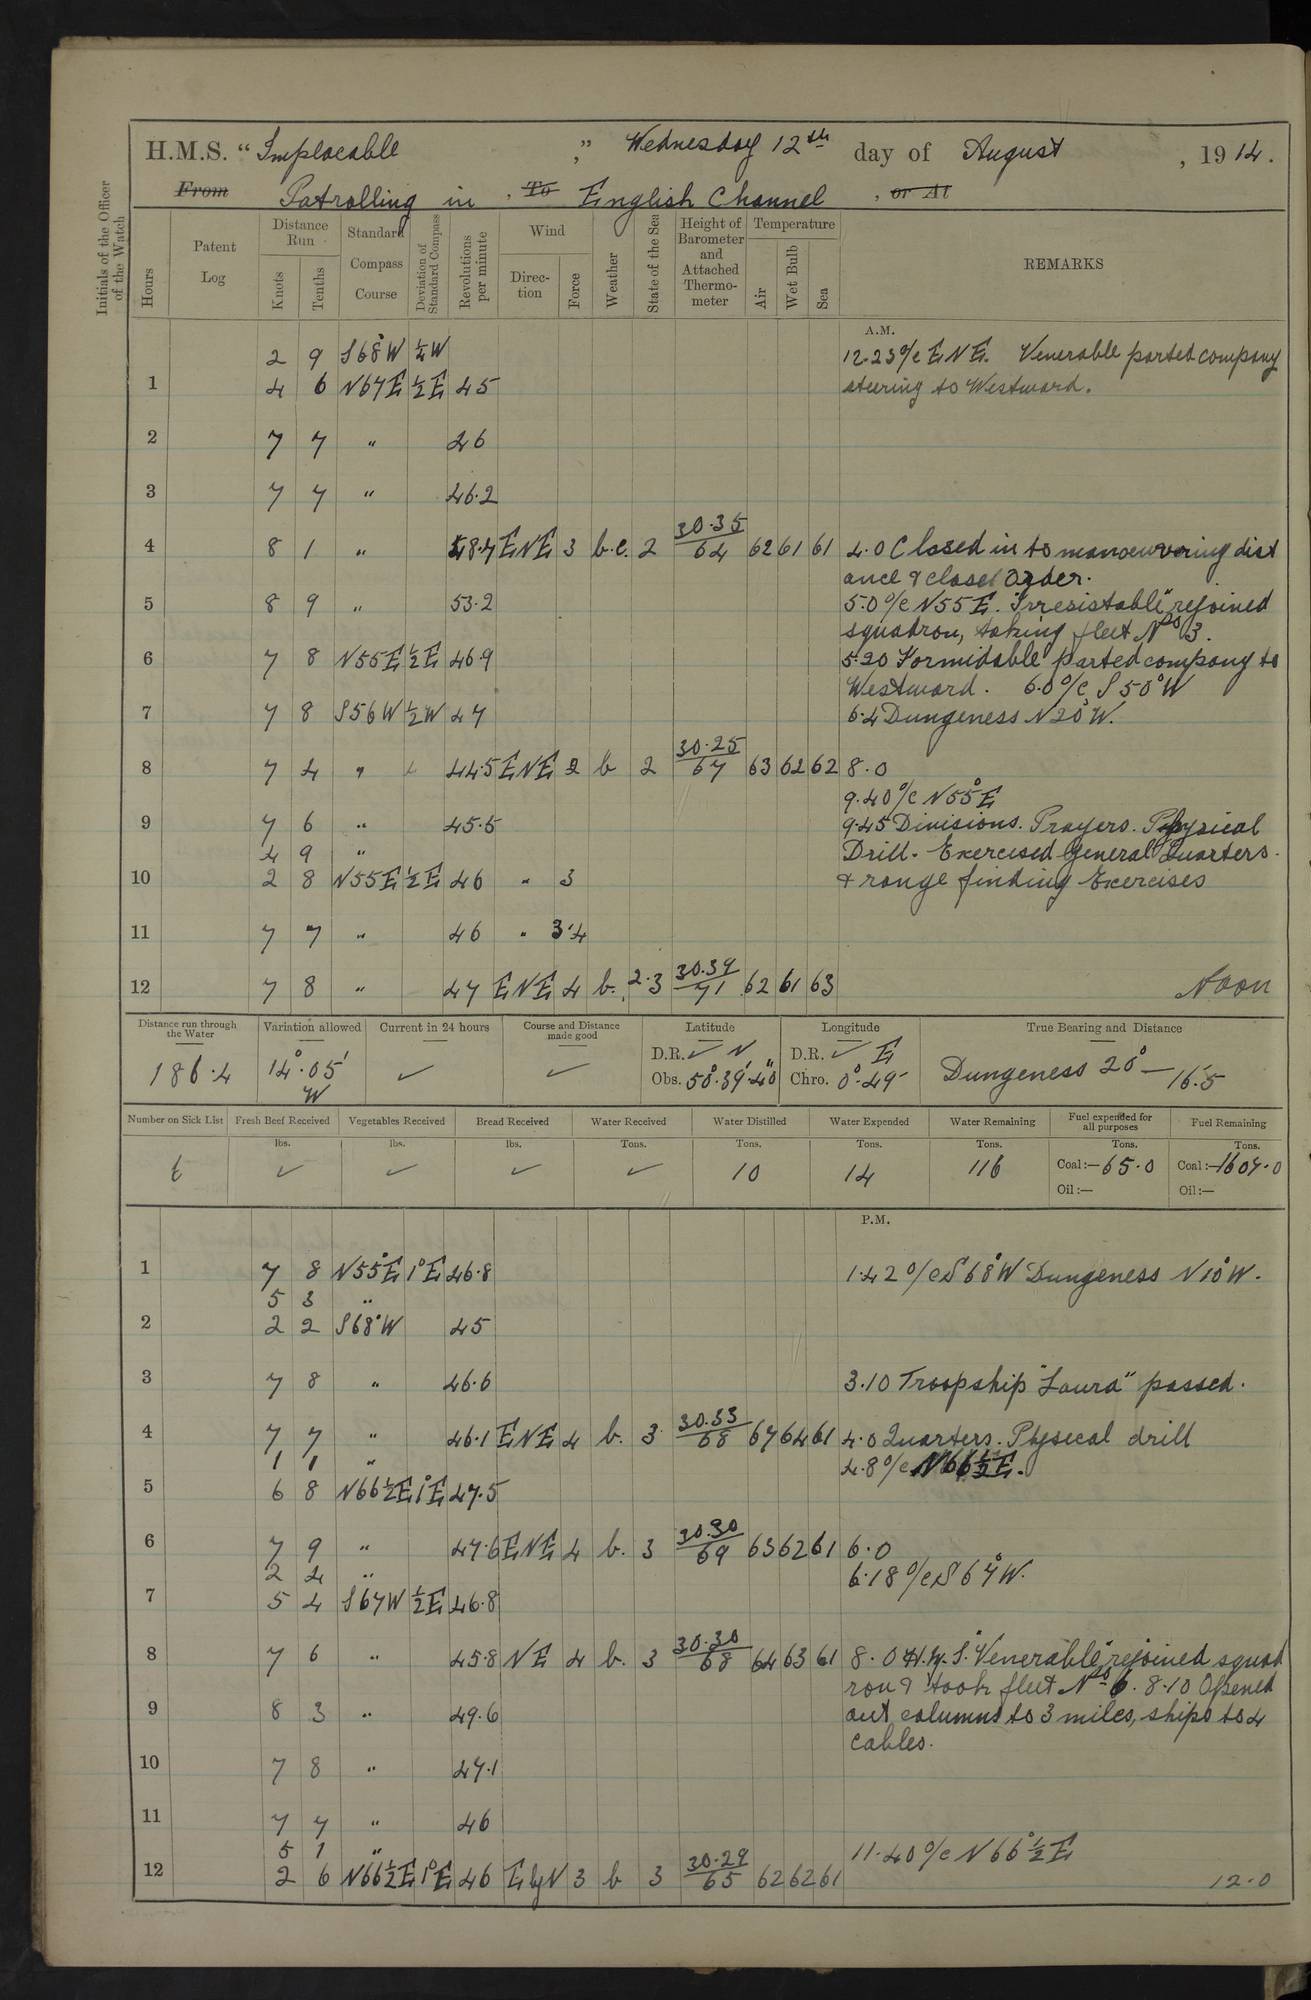 H.M.S. "Implacable," Wednesday 12th day of August, 1914.
From Patrolling in, To English Channel, or At
Initials of the Officer of the Watch
Hours
Patent Log
Distance Run
Knots
Tenths
Standard Compass Course
Deviation of Standard Compass
Revolutions per minute
Wind
Direction
Force
Weather
State of the Sea
Height of Barometer and Attached Thermometer
Temperature
Air
Wet Bulb
Sea
REMARKS
A.M.
2 9 S68°W ¼W 12.23 a/c ENE. Venerable parted company
1 4 6 N67E ½E 45 steering to Westward.
2 7 7 " 46
3 7 7 " 46.2
4 8 1 " 48.7 ENE 3 b.c. 2 30.35/64 62 61 61 4.0 Closed in to manoeuvering dist
ance & closed Order.
5 8 9 " 53.2 5.0 a/c N55E. "Irresistable" rejoined
squadron, taking fleet Nos 3.
6 7 8 N55E ½E 46.9 5.20 Formidable parted company to
Westward. 6.0 a/c S50°W
7 7 8 S56W ½W 47 6.4 Dungeness N20°W.
8 7 4 " 44.5 ENE 2 b 2 30.25/67 63 62 62 8.0
9.40 a/c N55°E
9 7 6 " 45.5 9.45 Divisions. Prayers. Physical
4 9 " Drill. Exercised General Quarters.
10 2 8 N55E ½E 46 " 3 & range finding Exercises
11 7 7 " 46 " 3.4
12 7 8 " 47 ENE 4 b. 2.3 30.39/71 62 61 63 Noon
Distance run through the Water
Variation allowed
Current in 24 hours
Course and Distance made good
Latitude
Longitude
True Bearing and Distance
186.4 14°.05' W ✓ ✓ D.R. ✓ N D.R. ✓ E Dungeness 20° — 16.5
Obs. 50°.39'.40" Chro. 0°.49'
Number on Sick List
Fresh Beef Received
Vegetables Received
Bread Received
Water Received
Water Distilled
Water Expended
Water Remaining
Fuel expended for all purposes
Fuel Remaining
lbs. lbs. lbs. Tons. Tons. Tons. Tons. Tons. Tons.
6 ✓ ✓ ✓ ✓ 10 14 116 Coal:—65.0 Coal:—1607.0
Oil:— Oil:—
P.M.
1 7 8 N55°E 1°E 46.8 1.42 a/c S68°W Dungeness N10°W.
5 3 "
2 2 2 S68°W 45
3 7 8 " 46.6 3.10 Troopship "Laura" passed.
4 7 7 " 46.1 ENE 4 b. 3 30.33/68 67 64 61 4.0 Quarters. Physecal drill
1 1 " 4.8 a/c N66½E.
5 6 8 N66½E 1°E 47.5
6 7 9 " 47.6 ENE 4 b. 3 30.30/69 63 62 61 6.0
2 4 " 6.18 a/c S67°W.
7 5 4 S67W ½E 46.8
8 7 6 " 45.8 NE 4 b. 3 30.30/68 64 63 61 8.0 H.M.S. "Venerable" rejoined squad
ron & took fleet Nos 6. 8.10 Opened
9 8 3 " 49.6 out columns to 3 miles, ships to 4
cables.
10 7 8 " 47.1
11 7 7 " 46
5 1 " 11.40 a/c N66½°E
12 2 6 N66½E 1°E 46 EbyN 3 b 3 30.29/65 62 62 61 12.0